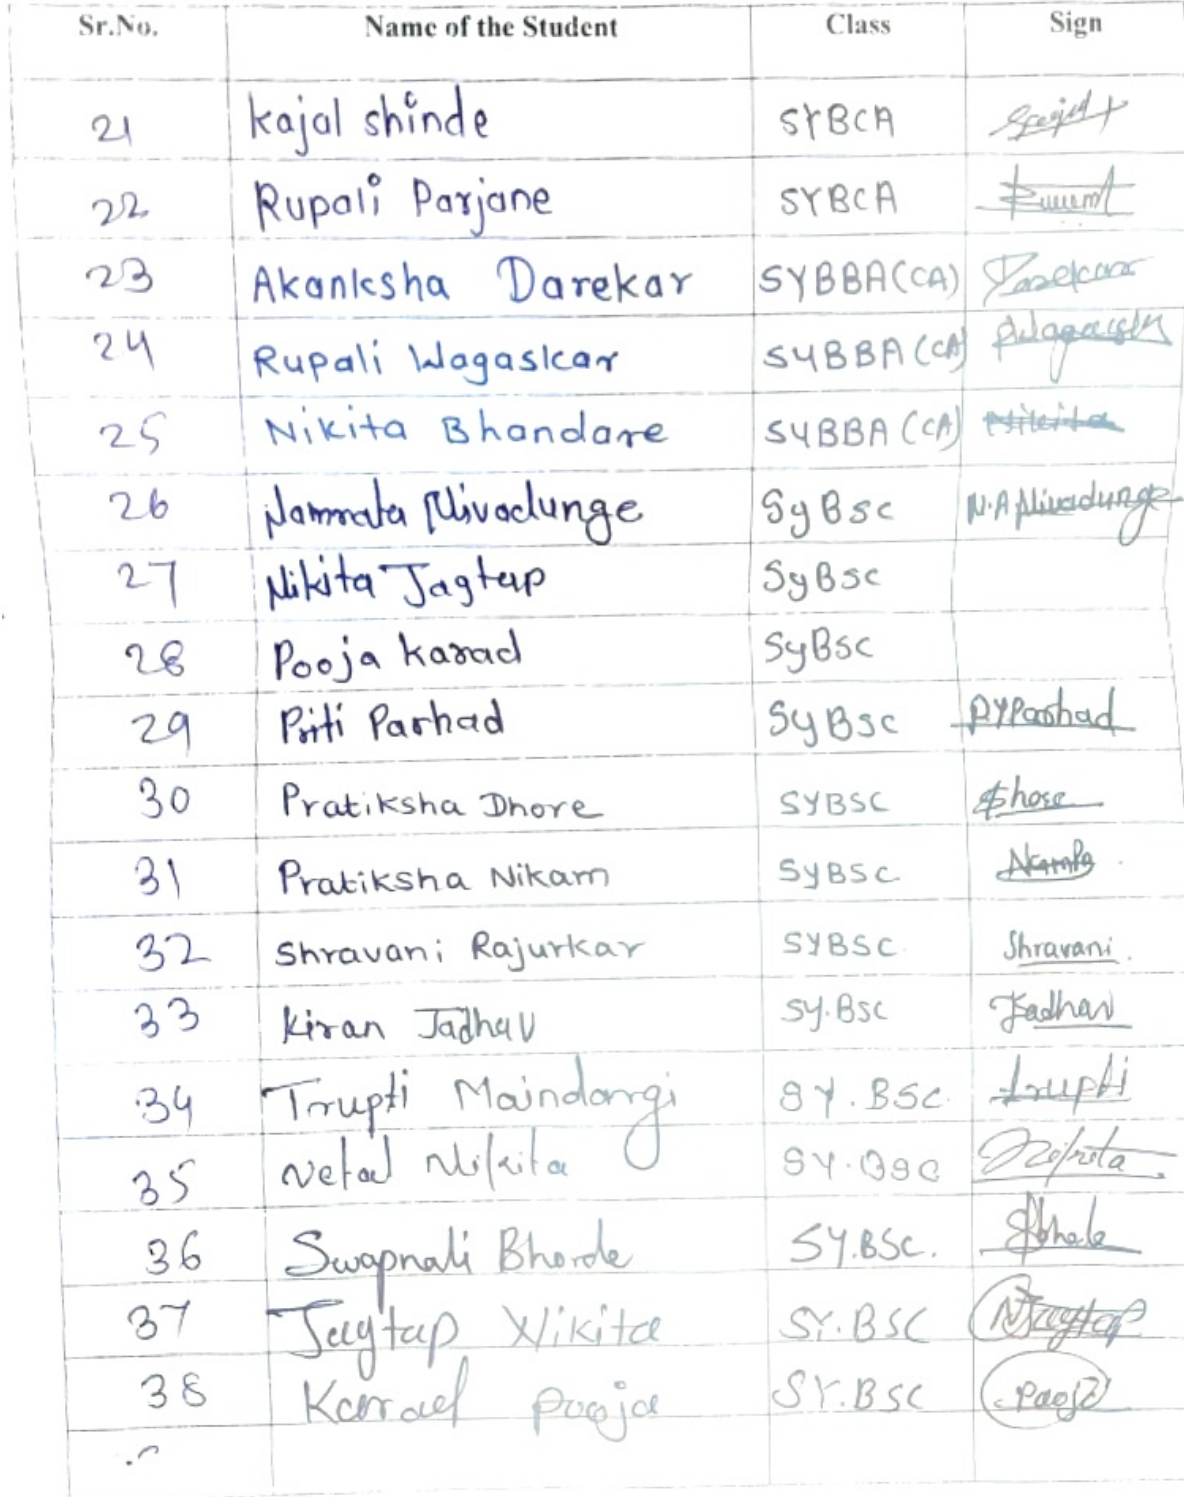 Sr.No. Name of the Student Class Sign
21 Kajal shinde SYBCA
22 Rupali Parjane SYBCA
23 Akanksha Darekar SYBBA(CA) Darekar
24 Rupali Wagaskar SYBBA(CA)
25 Nikita Bhandare SYBBA(CA) Nikita
26 Namrata Nivadunge SyBsc N.A Nivadunge
27 Nikita Jagtap SyBsc
28 Pooja Karad SyBsc
29 Priti Parhad SyBsc P.Y.Parhad
30 Pratiksha Dhore SYBSC Dhore
31 Pratiksha Nikam SYBSC
32 Shravani Rajurkar SYBSC Shravani
33 Kiran Jadhav SY.Bsc Jadhav
34 Trupti Maindargi SY.BSC. trupti
35 Nikita SY.BSC Nikita
36 Swapnali Bhorde SY.BSC.
37 Jagtap Nikita SY.BSC NJagtap
38 Karad Pooja SY.BSC Pooja